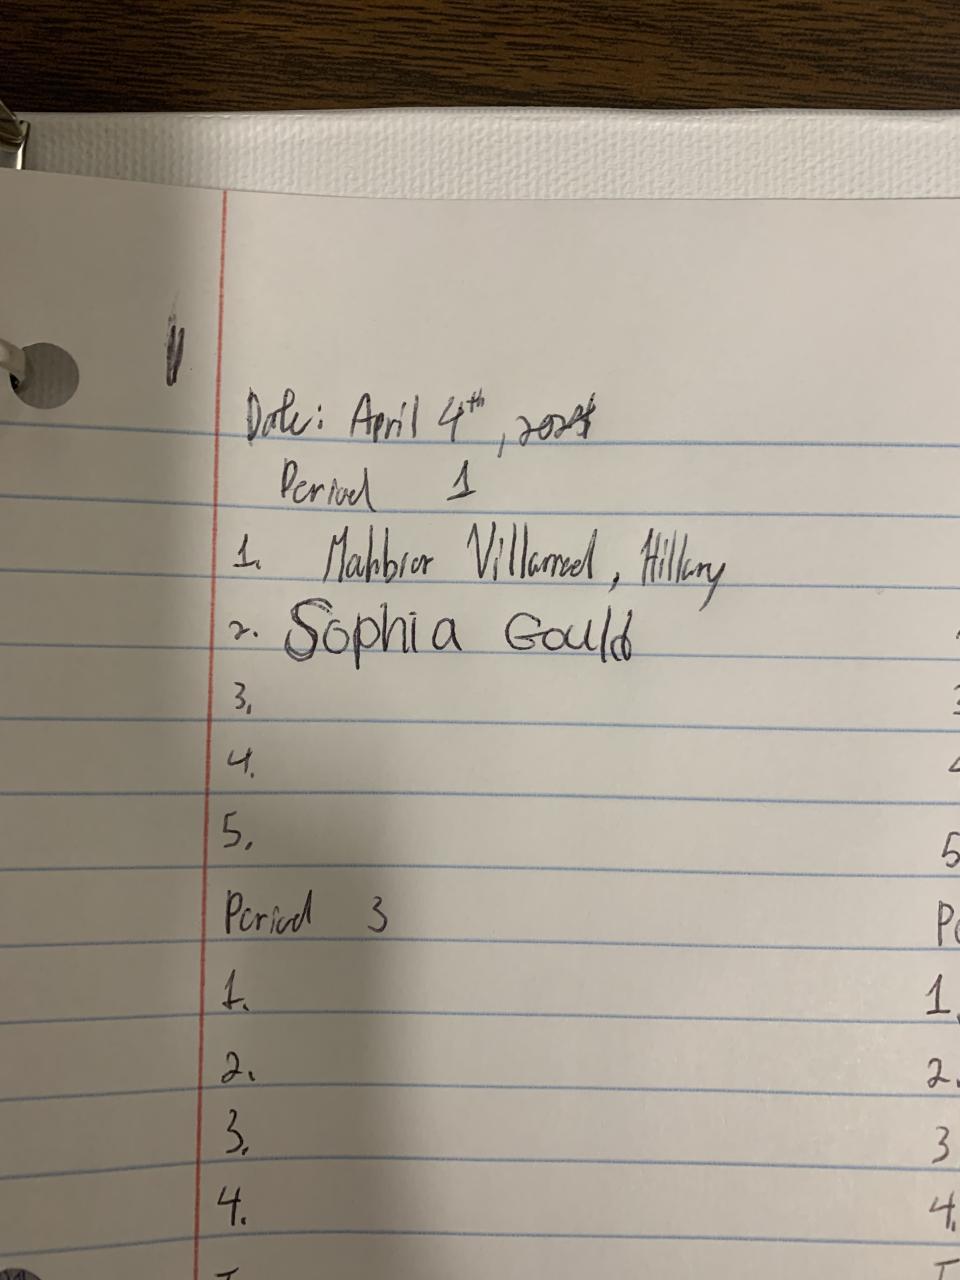 Date: April 4th, 2024
Period 1
1. Villarreal, Hillary
2. Sophia Gould
3.
4.
5.
Period 3
1.
2.
3.
4.
3
4
5
1.
2.
3
4.